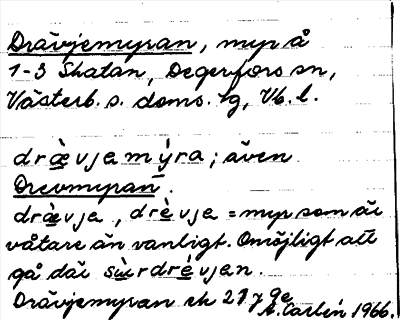 Drävjemyran, myr å
1-3 Skatan, Degerfors sn,
Västerb. s. doms. tg, Vb. l.
dràvjamýra; även
Drevmyran.
dràvja, drèvja = myr som är
våtare än vanligt. Omöjligt att
gå där sùrdrévjan.
Drävjemyran ek 21 J 9e
A. Carlén 1966.